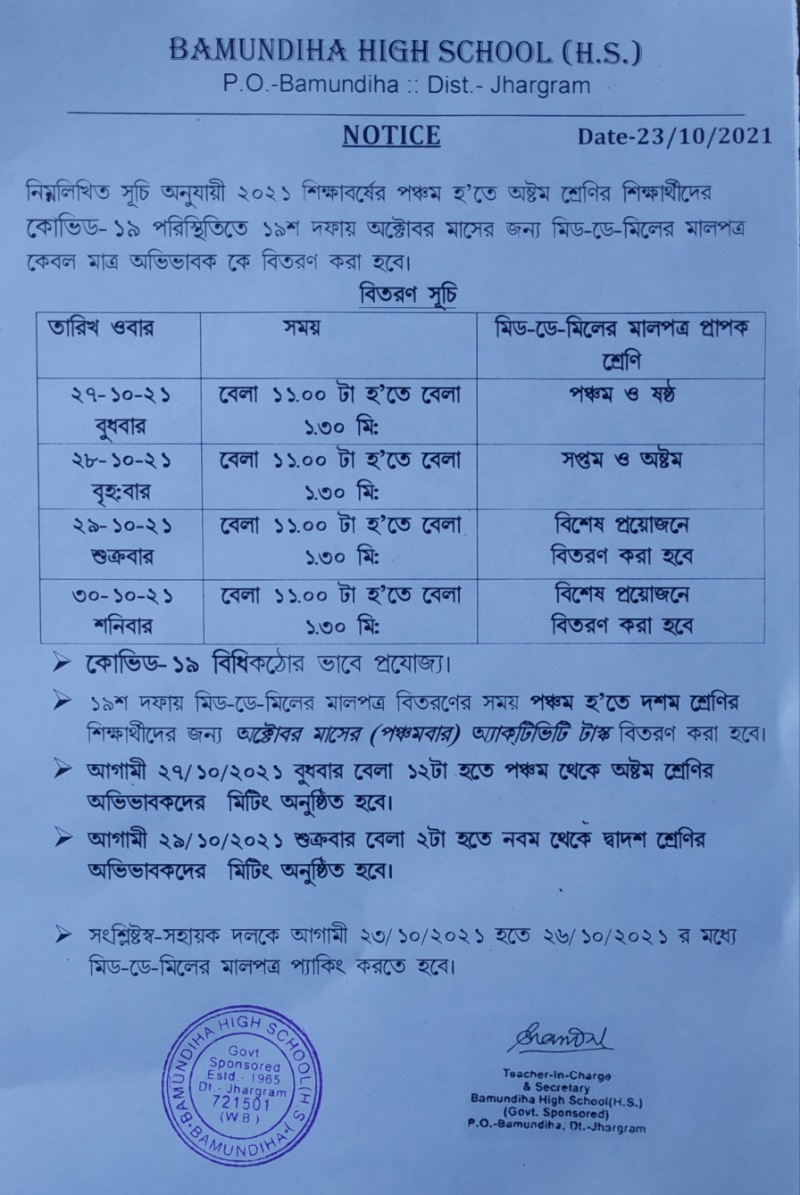 BAMUNDIHA HIGH SCHOOL (H.S.)
P.O.-Bamundiha :: Dist.- Jhargram
NOTICE Date-23/10/2021
নিম্নলিখিত সূচি অনুযায়ী ২০২১ শিক্ষাবর্ষের পঞ্চম হ'তে অষ্টম শ্রেণির শিক্ষার্থীদের
কোভিড- ১৯ পরিস্থিতিতে ১৯শ দফায় অক্টোবর মাসের জন্য মিড-ডে-মিলের মালপত্র
কেবল মাত্র অভিভাবক কে বিতরণ করা হবে।
বিতরণ সূচি
তারিখ ওবার সময় মিড-ডে-মিলের মালপত্র প্রাপক
শ্রেণি
২৭-১০-২১ বেলা ১১.০০ টা হ'তে বেলা পঞ্চম ও ষষ্ঠ
বুধবার ১.৩০ মি:
২৮-১০-২১ বেলা ১১.০০ টা হ'তে বেলা সপ্তম ও অষ্টম
বৃহ:বার ১.৩০ মি:
২৯-১০-২১ বেলা ১১.০০ টা হ'তে বেলা বিশেষ প্রয়োজনে
শুক্রবার ১.৩০ মি: বিতরণ করা হবে
৩০-১০-২১ বেলা ১১.০০ টা হ'তে বেলা বিশেষ প্রয়োজনে
শনিবার ১.৩০ মি: বিতরণ করা হবে
➢ কোভিড- ১৯ বিধিকঠোর ভাবে প্রযোজ্য।
➢ ১৯শ দফায় মিড-ডে-মিলের মালপত্র বিতরণের সময় পঞ্চম হ'তে দশম শ্রেণির
শিক্ষার্থীদের জন্য অক্টোবর মাসের (পঞ্চমবার) অ্যাকটিভিটি টাস্ক বিতরণ করা হবে।
➢ আগামী ২৭/১০/২০২১ বুধবার বেলা ১২টা হতে পঞ্চম থেকে অষ্টম শ্রেণির
অভিভাবকদের মিটিং অনুষ্ঠিত হবে।
➢ আগামী ২৯/১০/২০২১ শুক্রবার বেলা ২টা হতে নবম থেকে দ্বাদশ শ্রেণির
অভিভাবকদের মিটিং অনুষ্ঠিত হবে।
➢ সংশ্লিষ্টস্ব-সহায়ক দলকে আগামী ২৩/১০/২০২১ হতে ২৬/১০/২০২১ র মধ্যে
মিড-ডে-মিলের মালপত্র প্যাকিং করতে হবে।
BAMUNDIHA HIGH SCHOOL (H.S.)
Govt
Sponsored
Estd - 1965
Dt.- Jhargram
721501
(W.B)
BAMUNDIHA
Teacher-In-Charge
& Secretary
Bamundiha High School(H.S.)
(Govt. Sponsored)
P.O.-Bamundiha, Dt.-Jhargram